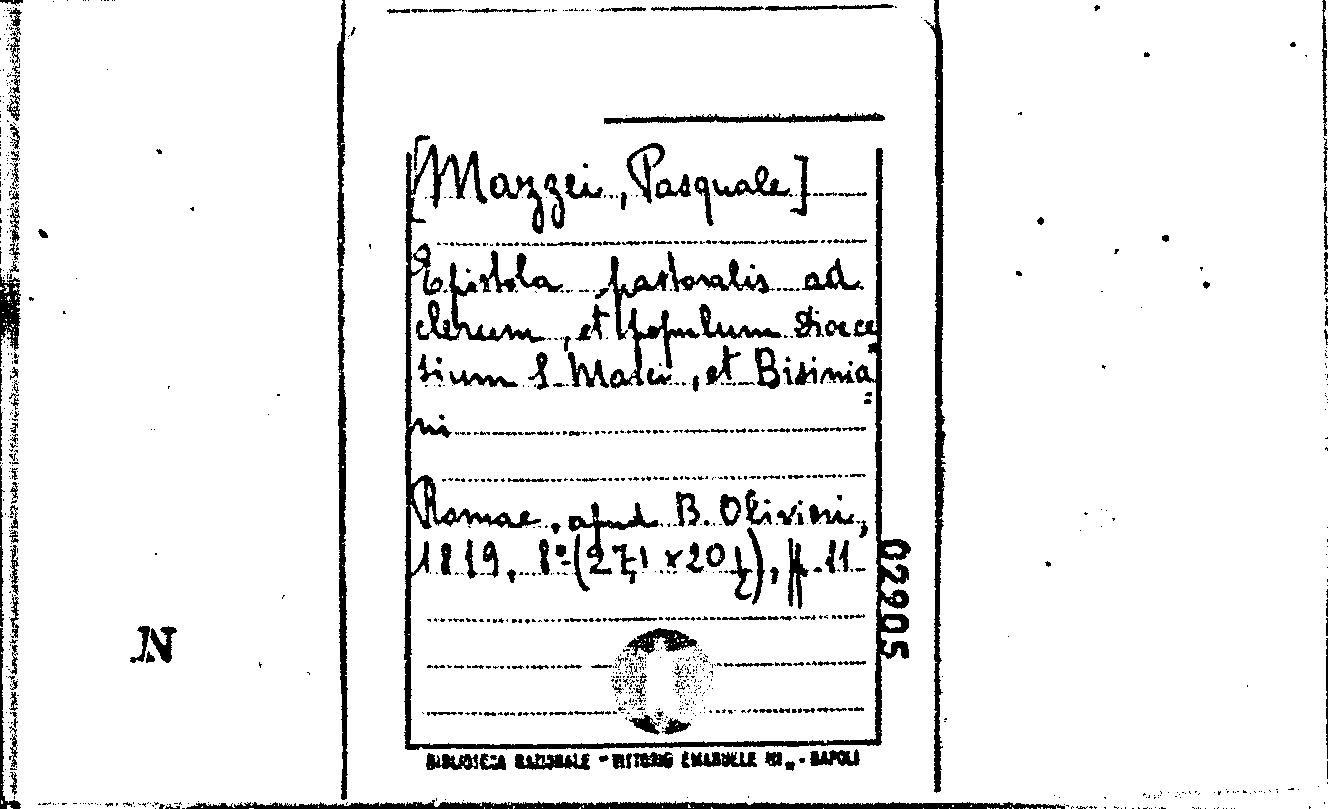 [Mazzei, Pasquale]
Epistola pastoralis ad
clerum, et populum Dioece
sium S. Marci, et Bisinia=
ni
Romae, apud B. Olivieri,
1819, 8º (27,1 x 20,2), pp. 11
02905
N
BIBLIOTECA NAZIONALE "VITTORIO EMANUELE III" - NAPOLI